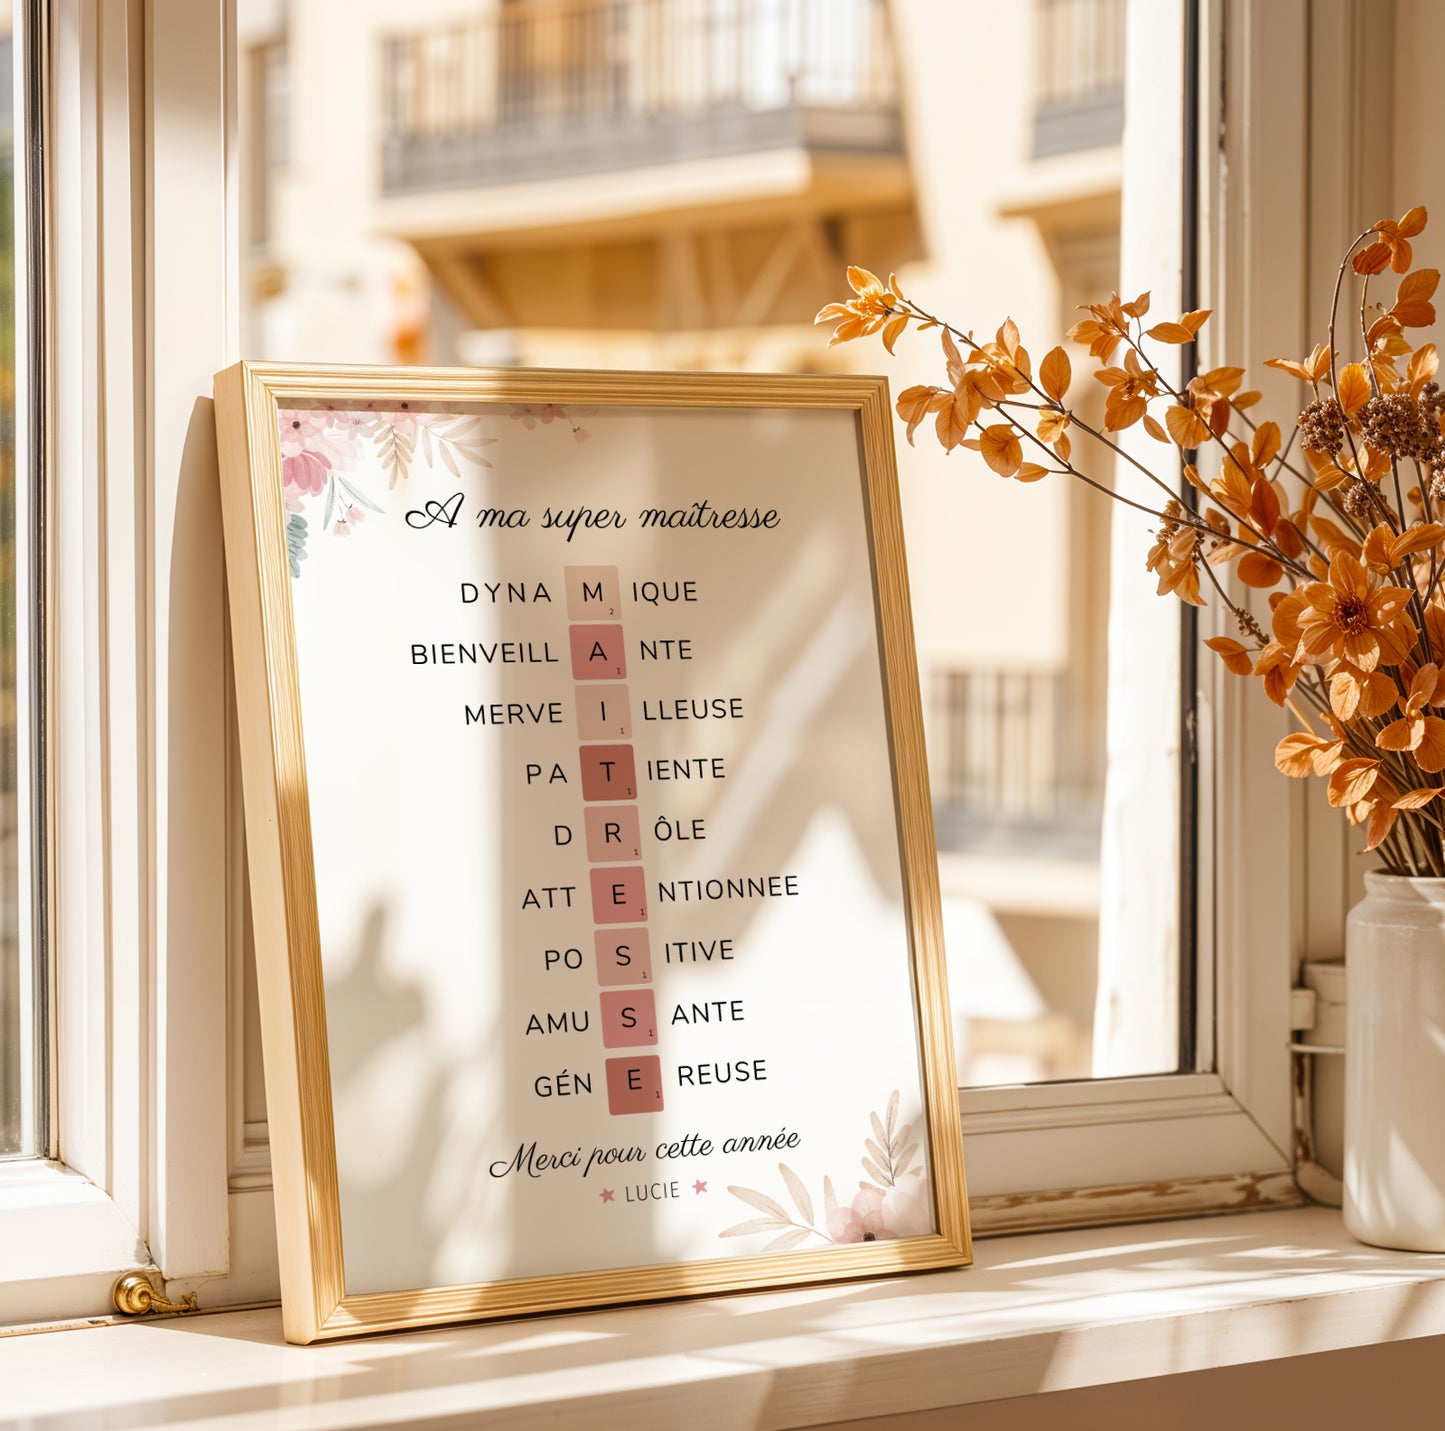 A ma super maîtresse
DYNA M 2 IQUE
BIENVEILL A 1 NTE
MERVE I 1 LLEUSE
PA T 1 IENTE
D R 1 ÔLE
ATT E 1 NTIONNEE
PO S 1 ITIVE
AMU S 1 ANTE
GÉN E 1 REUSE
Merci pour cette année
★ LUCIE ★